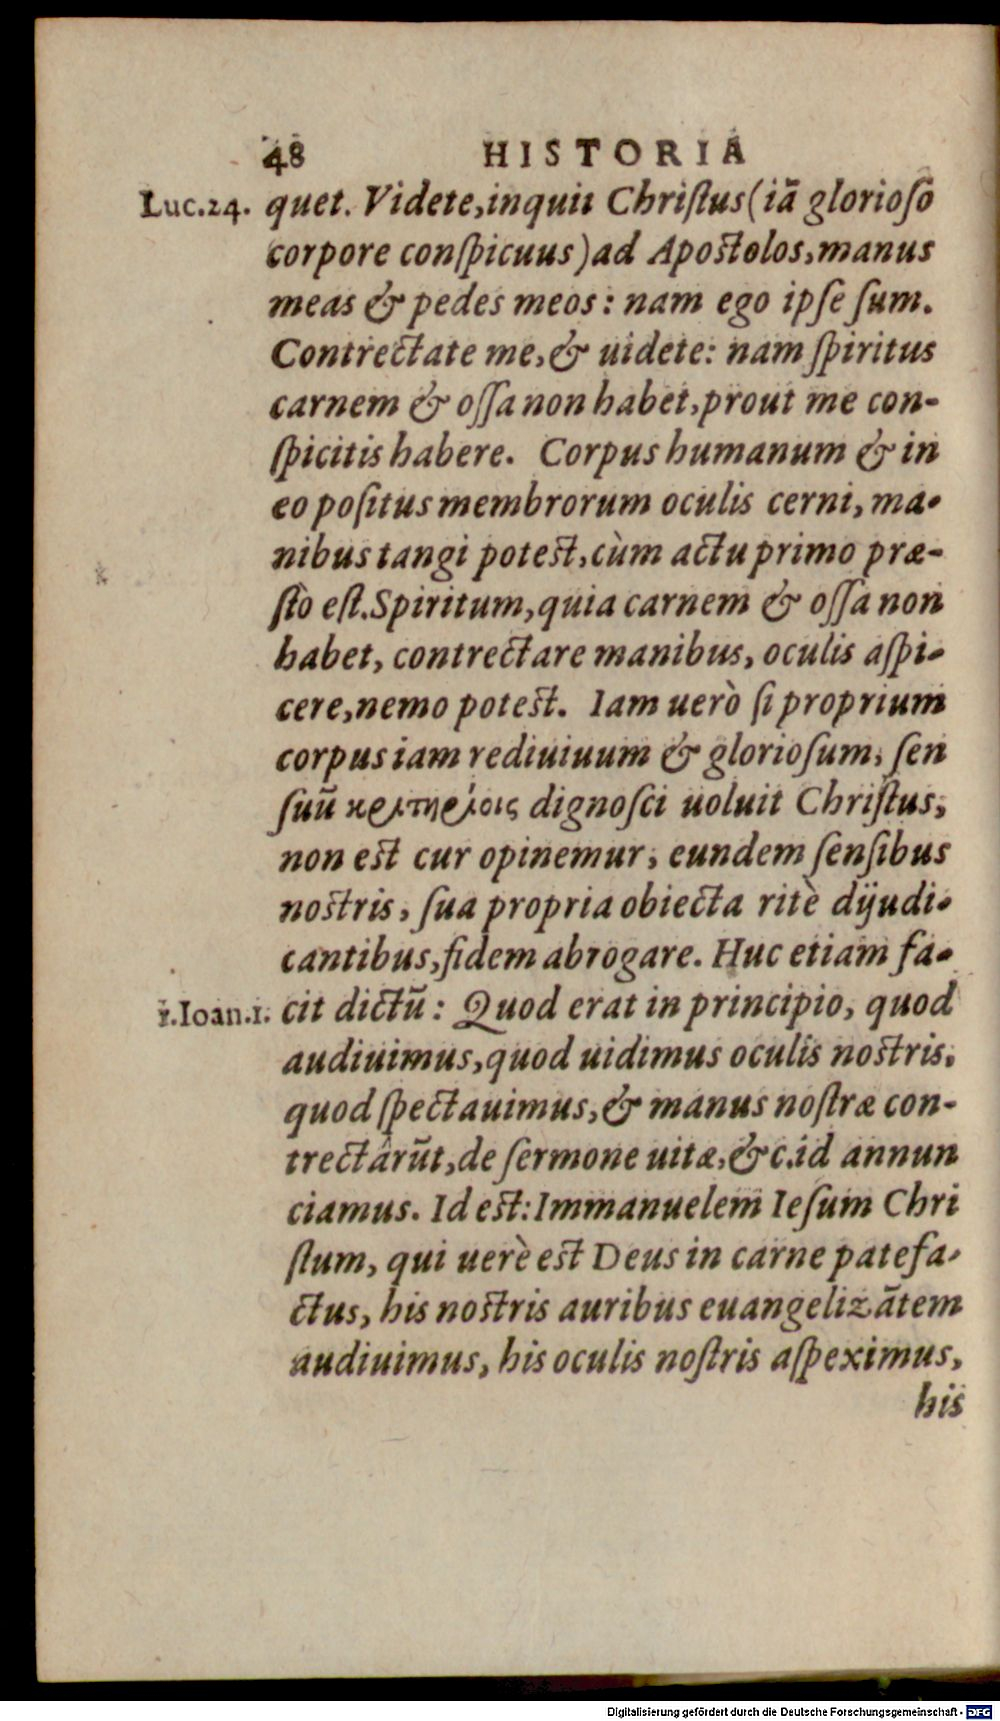 48 HISTORIA
Luc.24. quet. Videte,inquit Chriſtus(iā glorioſo
corpore conſpicuus)ad Apoſtolos,manus
meas & pedes meos: nam ego ipſe ſum.
Contrectate me,& uidete: nam ſpiritus
carnem & oſſa non habet,prout me con-
ſpicitis habere. Corpus humanum & in
eo poſitus membrorum oculis cerni, ma-
nibus tangi poteſt,cùm actu primo præ-
ſtò eſt.Spiritum,quia carnem & oſſa non
habet, contrectare manibus, oculis aſpi-
cere,nemo poteſt. Iam uerò ſi proprium
corpus iam rediuiuum & glorioſum, ſen
ſuū κριτηρίοις dignoſci uoluit Chriſtus,
non eſt cur opinemur, eundem ſenſibus
noſtris, ſua propria obiecta ritè dijudi-
cantibus,fidem abrogare. Huc etiam fa-
1.Ioan.1. cit dictū: Quod erat in principio, quod
audiuimus,quod uidimus oculis noſtris,
quod ſpectauimus,& manus noſtræ con-
trectârūt,de ſermone uitæ,&c.id annun
ciamus. Id eſt:Immanuelem Ieſum Chri
ſtum, qui uerè eſt Deus in carne patefa-
ctus, his noſtris auribus euangelizātem
audiuimus, his oculis noſtris aſpeximus,
his
Digitalisierung gefördert durch die Deutsche Forschungsgemeinschaft - DFG